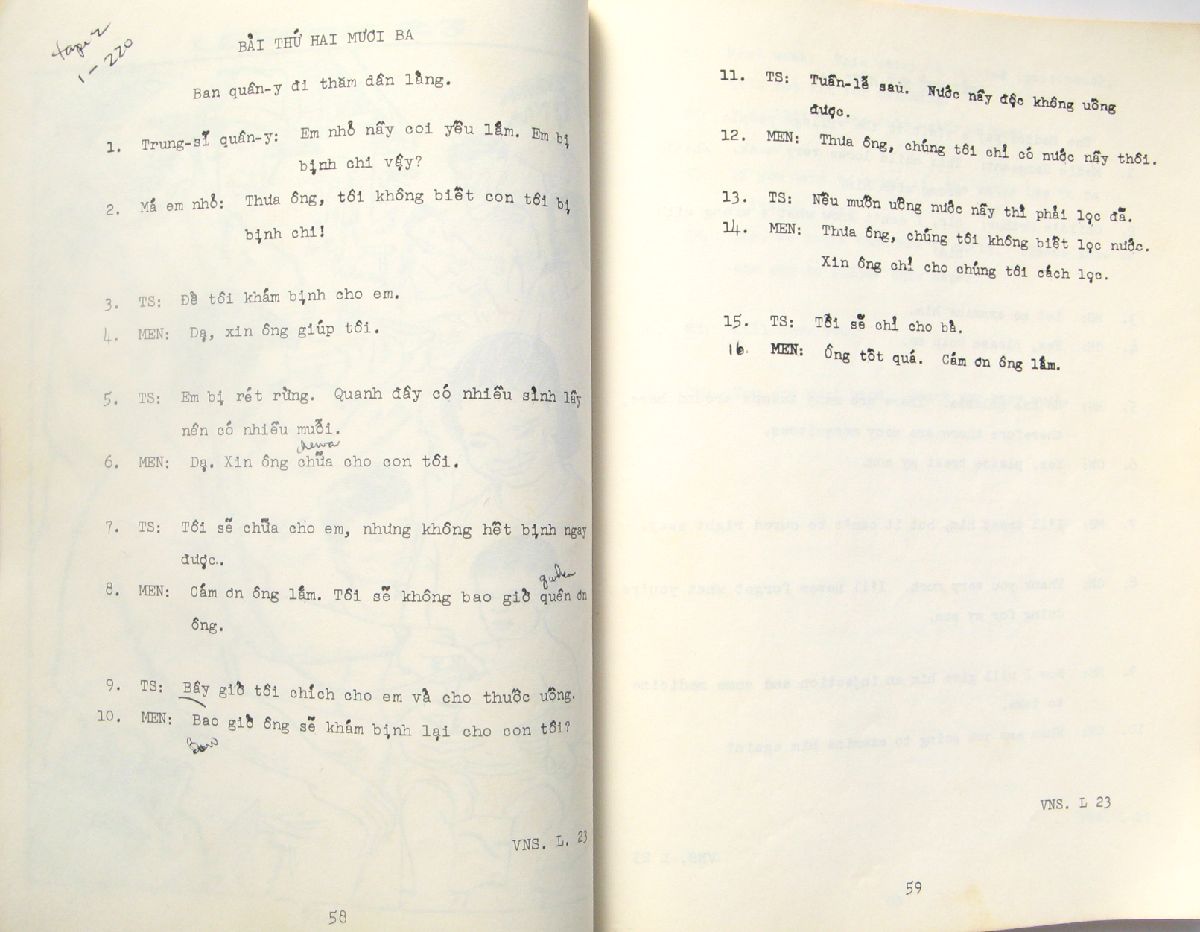 tape 2
1-220
BÀI THỨ HAI MƯƠI BA
Ban quân-y đi thăm dân làng.
1. Trung-sĩ quân-y: Em nhỏ nầy coi yếu lắm. Em bị
bịnh chi vậy?
2. Má em nhỏ: Thưa ông, tôi không biết con tôi bị
bịnh chi!
3. TS: Để tôi khám bịnh cho em.
4. MEN: Dạ, xin ông giúp tôi.
5. TS: Em bị rét rừng. Quanh đây có nhiều sình lầy
nên có nhiều muỗi.
6. MEN: Dạ. Xin ông chữa cho con tôi.
7. TS: Tôi sẽ chữa cho em, nhưng không hết bịnh ngay
được..
8. MEN: Cám ơn ông lắm. Tôi sẽ không bao giờ quên ơn
ông.
9. TS: Bây giờ tôi chích cho em và cho thuốc uống.
10. MEN: Bao giờ ông sẽ khám bịnh lại cho con tôi?
VNS. L. 23
58
11. TS: Tuần-lễ sau. Nước nầy độc không uống
được.
12. MEN: Thưa ông, chúng tôi chỉ có nước nầy thôi.
13. TS: Nếu muốn uống nước nầy thì phải lọc đã.
14. MEN: Thưa ông, chúng tôi không biết lọc nước.
Xin ông chỉ cho chúng tôi cách lọc.
15. TS: Tôi sẽ chỉ cho bà.
16. MEN: Ông tốt quá. Cám ơn ông lắm.
VNS. L 23
59